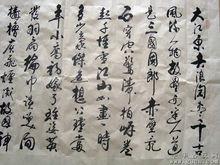 大江東去浪淘盡千古
風流人物故壘西邊人道
是三國周郎赤壁亂
石穿空驚濤拍岸卷
起千堆雪江山如畫一時
多少豪傑遙想公瑾當
年小喬初嫁了雄姿英
發羽扇綸巾談笑間
檣櫓灰飛煙滅故國神